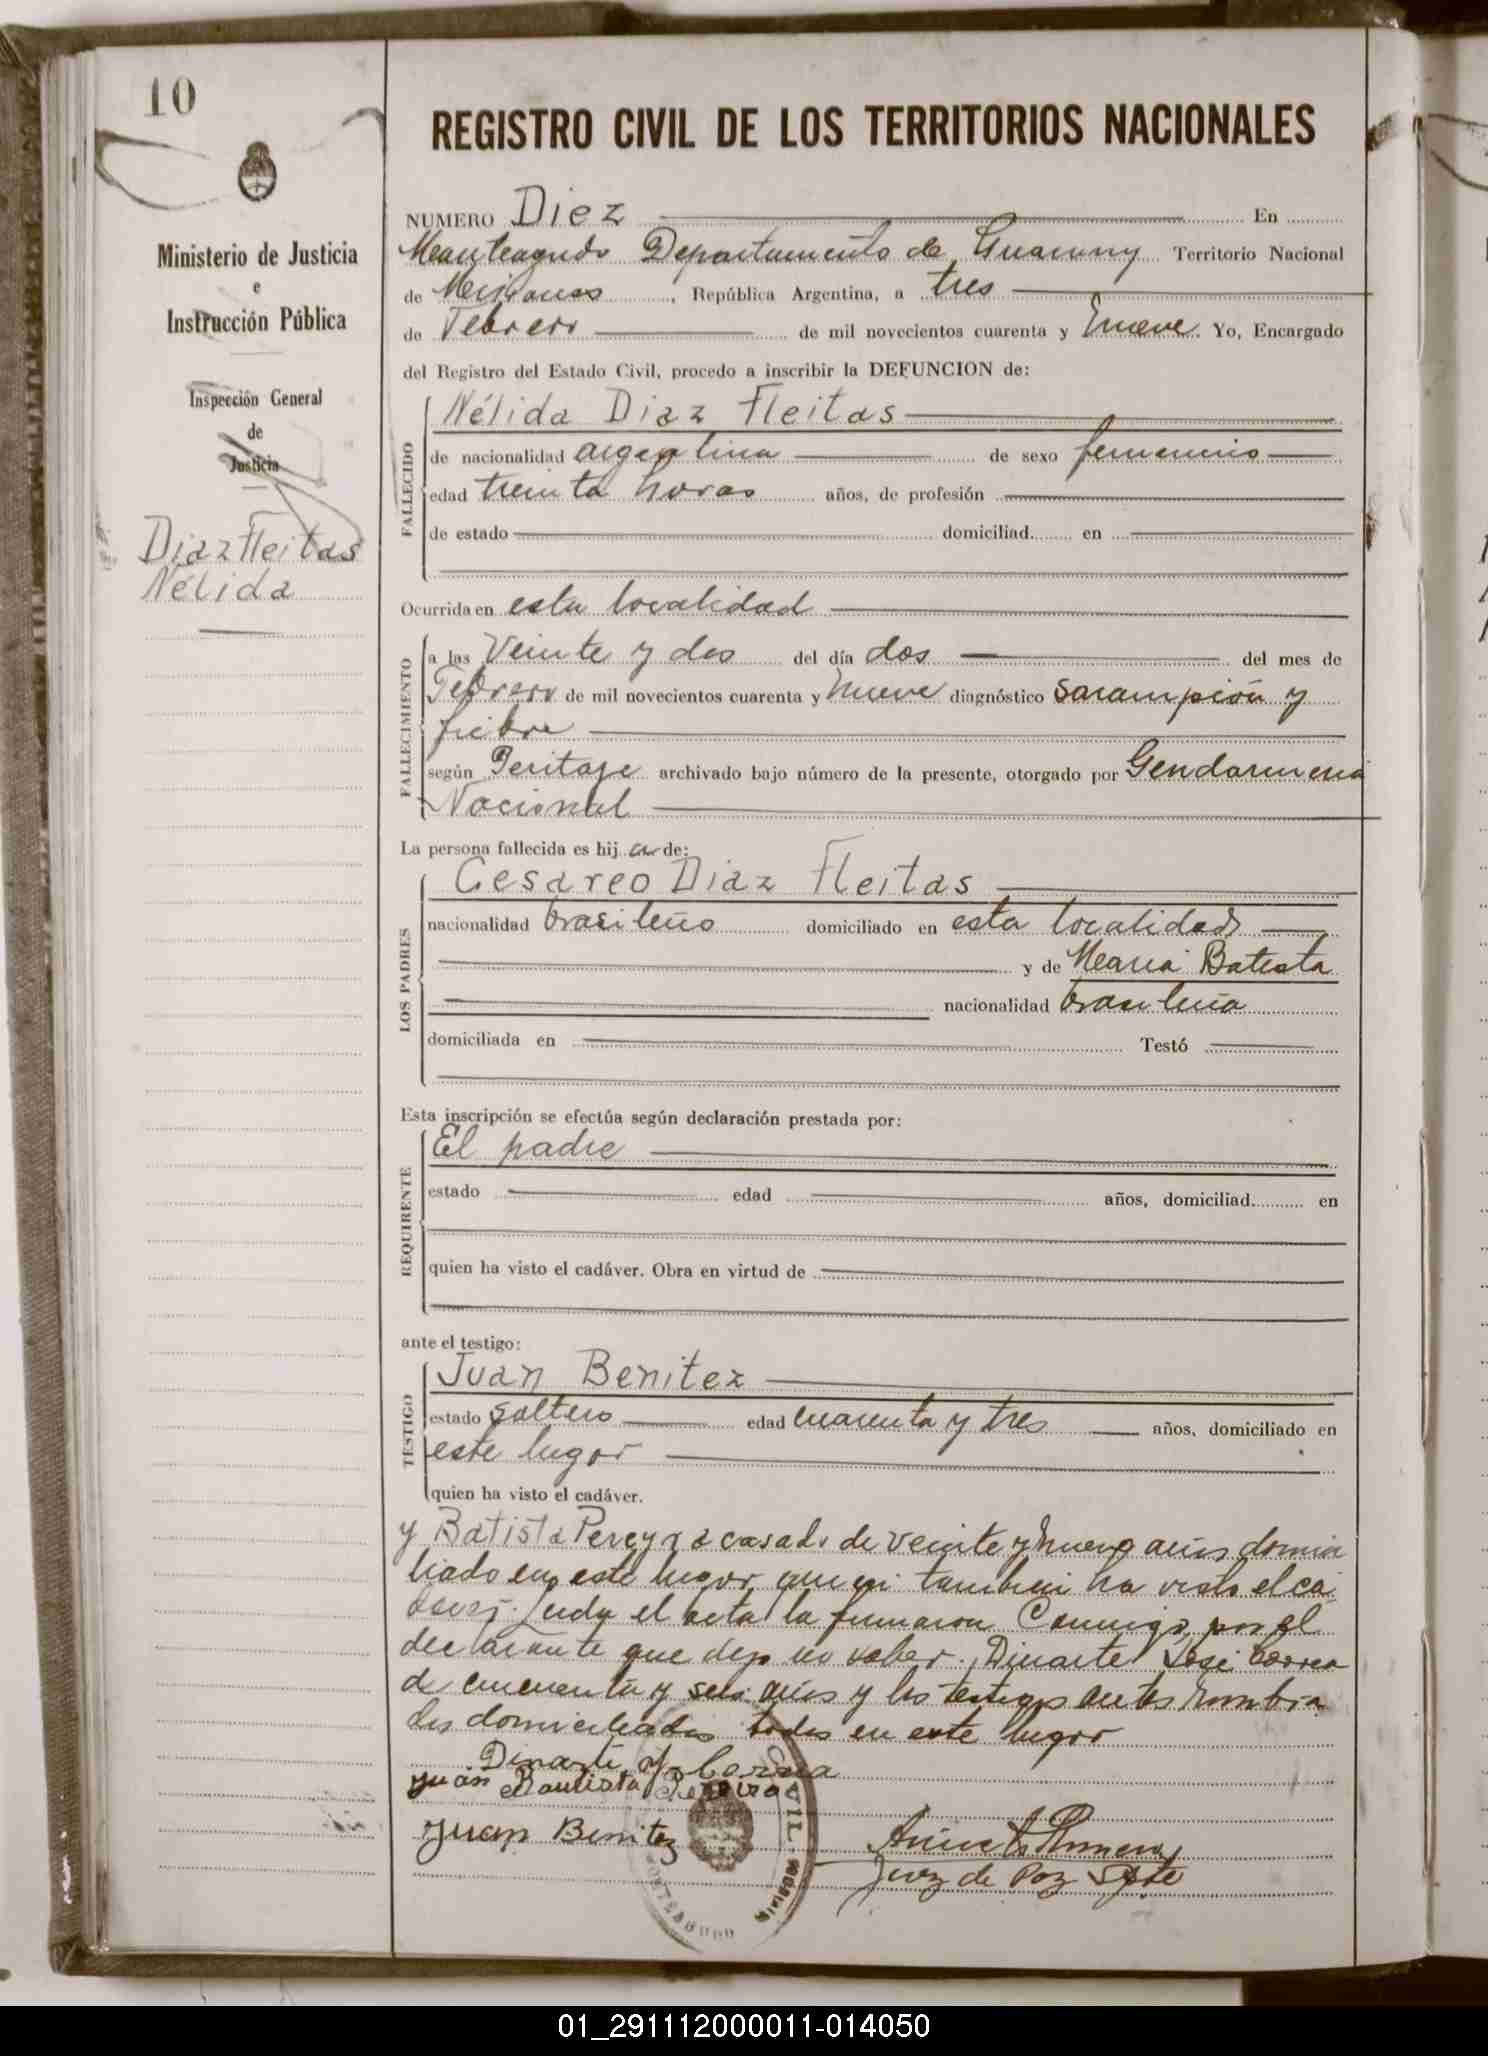 10
REGISTRO CIVIL DE LOS TERRITORIOS NACIONALES
Ministerio de Justicia
e
Instrucción Pública
Inspección General
de
Justicia
Diaz Fleitas
Nélida
NUMERO Diez En
Monteagudo Departamento de Guarany Territorio Nacional
de Misiones, República Argentina, a tres
de Febrero de mil novecientos cuarenta y nueve. Yo, Encargado
del Registro del Estado Civil, procedo a inscribir la DEFUNCION de:
FALLECIDO
Nélida Diaz Fleitas
de nacionalidad argentina de sexo femenino
edad treinta horas años, de profesión
de estado domiciliad en
Ocurrida en esta localidad
FALLECIMIENTO
a las Veinte y dos del día dos del mes de
Febrero de mil novecientos cuarenta y nueve diagnóstico Sarampión y
fiebre
según Peritaje archivado bajo número de la presente, otorgado por Gendarmeria
Nacional
La persona fallecida es hija de:
LOS PADRES
Cesareo Diaz Fleitas
nacionalidad brasileño domiciliado en esta localidad
y de Maria Batista
nacionalidad brasileña
domiciliada en Testó
Esta inscripción se efectúa según declaración prestada por:
REQUIRENTE
El padre
estado edad años, domiciliad en
quien ha visto el cadáver. Obra en virtud de
ante el testigo:
TESTIGO
Juan Benitez
estado soltero edad cuarenta y tres años, domiciliado en
este lugar
quien ha visto el cadáver.
y Batista Pereyra casado de veinte y nueve años domici
liado en este lugar quien tambien ha visto el ca
daver. Leida el acta la firmaron Conmigo, por el
declarante que dijo no saber. Dinarte José Correa
de cincuenta y seis años y los testigos antes nombra
dos domiciliados todos en este lugar
Dinarte J. Correa
Juan Bautista Pereira
Juan Benitez
Romero
Juez de Paz Spte
CIVIL
MONTEAGUDO
01_291112000011-014050